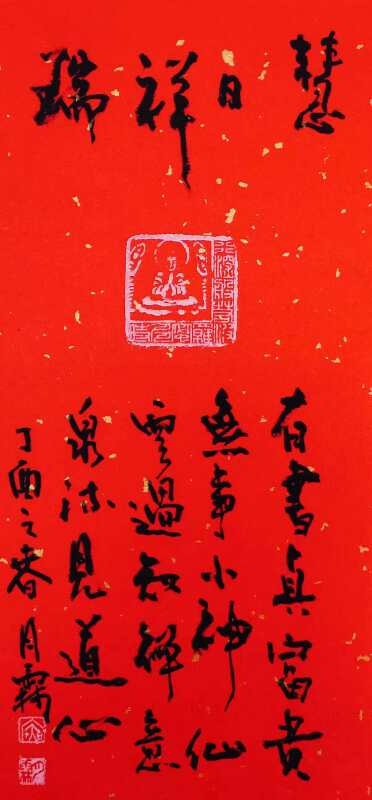 慧日祥瑞
有書真富貴
無事小神仙
雲過知禪意
泉流見道心
丁酉之春月霖